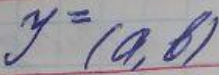 y = (a, b)